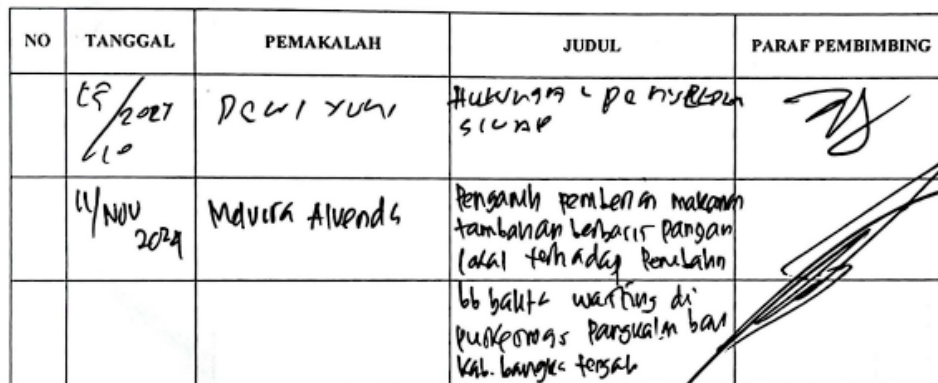 NO TANGGAL PEMAKALAH JUDUL PARAF PEMBIMBING
Dewi Yuni
11/Nov 2024 Mavira Alvenda Pengaruh pemberian makanan
tambahan berbasis pangan
lokal terhadap Perubahn
bb balita wasting di
puskesmas pangkalan baru
kab. bangka tengah